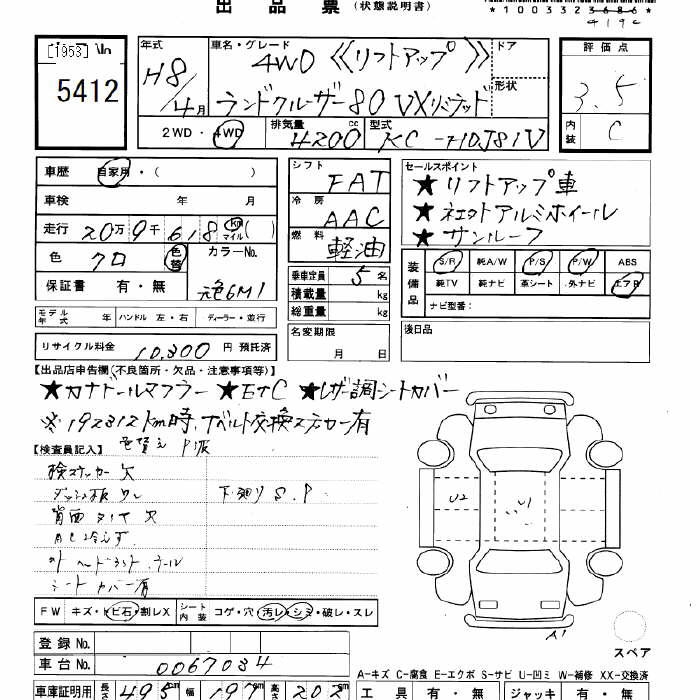 出品票(状態説明書)
*1003323686*
4192
[1953] 5412
年式 H8/4月
車名・グレード 4WD 《リフトアップ》 ランドクルーザー80 VXリミテッド
ドア 形状
評価点 3.5
内装 C
2WD・4WD 排気量 4200 cc 型式 KC-HDJ81V
車歴 自家用・( )
車検 年 月
走行 20万9千618 km マイル ( )
色 クロ 色替 カラーNo. 元色6M1
保証書 有・無
シフト FAT
冷房 AAC
燃料 軽油
乗車定員 5名
積載量 kg
総重量 kg
名変期限 月 日
セールスポイント
★リフトアップ車
★社外アルミホイール
★サンルーフ
装備品 S/R 純A/W P/S P/W ABS
純TV 純ナビ 革シート 外ナビ エアB
ナビ型番:
後日品
モデル年式 年 ハンドル 左・右 ディーラー・並行
リサイクル料金 10,300円 預託済
【出品店申告欄(不良箇所・欠品・注意事項等)】
★カナドールマフラー ★ETC ★レザー調シートカバー
※192312km時、Tベルト交換ステッカー有
【検査員記入】 色替え
検ステッカー欠
ダッシュ板ワレ 下廻りS.P
背面タイヤ欠
シートカバー有
FW キズ・トビ石・割レX シート内装 コゲ・穴・汚レ・シミ・破レ・スレ
U2 U1
A1
スペア
登録No.
車台No. 0067034
A-キズ C-腐食 E-エクボ S-サビ U-凹ミ W-補修 XX-交換済
車庫証明用 長さ 495cm 幅 197cm 高さ 202cm
工具 有・無 ジャッキ 有・無